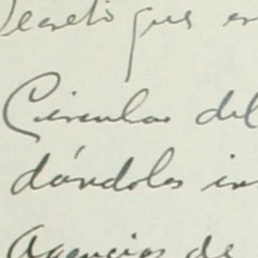 Decreto que en
Circular del
dándoles in
Agencias de